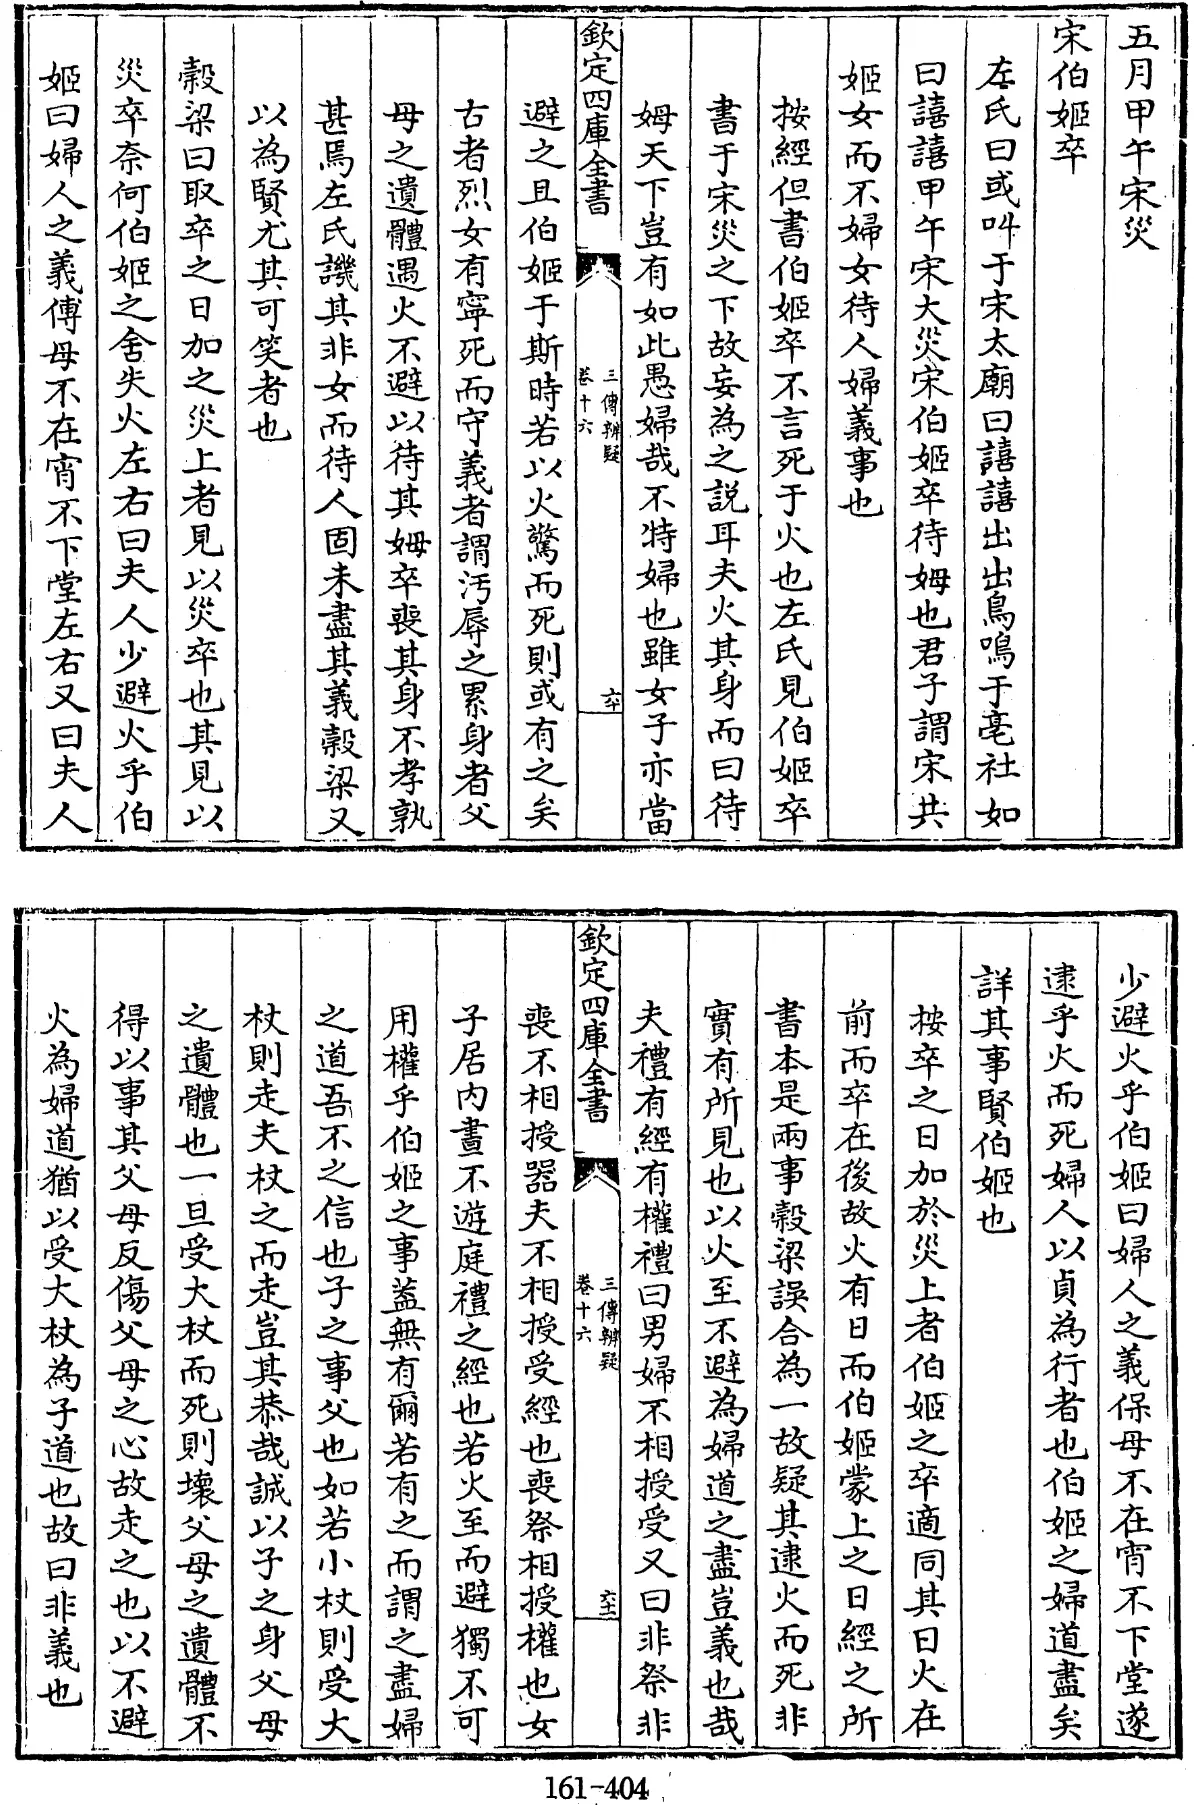 五月甲午宋災
宋伯姬卒
左氏曰或叫于宋太廟曰譆譆出出鳥鳴于亳社如
曰譆譆甲午宋大災宋伯姬卒待姆也君子謂宋共
姬女而不婦女待人婦義事也
按經但書伯姬卒不言死于火也左氏見伯姬卒
書于宋災之下故妄為之説耳夫火其身而曰待
姆天下豈有如此愚婦哉不特婦也雖女子亦當
欽定四庫全書
三傳辨疑
卷十六
六十
避之且伯姬于斯時若以火驚而死則或有之矣
古者烈女有寧死而守義者謂汚辱之累身者父
母之遺體遇火不避以待其姆卒喪其身不孝孰
甚焉左氏譏其非女而待人固未盡其義穀梁又
以為賢尤其可笑者也
穀梁曰取卒之日加之災上者見以災卒也其見以
災卒奈何伯姬之舍失火左右曰夫人少避火乎伯
姬曰婦人之義傅母不在宵不下堂左右又曰夫人
少避火乎伯姬曰婦人之義保母不在宵不下堂遂
逮乎火而死婦人以貞為行者也伯姬之婦道盡矣
詳其事賢伯姬也
按卒之日加於災上者伯姬之卒適同其日火在
前而卒在後故火有日而伯姬蒙上之日經之所
書本是兩事穀梁誤合為一故疑其逮火而死非
實有所見也以火至不避為婦道之盡豈義也哉
夫禮有經有權禮曰男婦不相授受又曰非祭非
欽定四庫全書
三傳辨疑
卷十六
六十一
喪不相授器夫不相授受經也喪祭相授權也女
子居内晝不遊庭禮之經也若火至而避獨不可
用權乎伯姬之事葢無有爾若有之而謂之盡婦
之道吾不之信也子之事父也如若小杖則受大
杖則走夫杖之而走豈其恭哉誠以子之身父母
之遺體也一旦受大杖而死則壞父母之遺體不
得以事其父母反傷父母之心故走之也以不避
火為婦道猶以受大杖為子道也故曰非義也
161-404